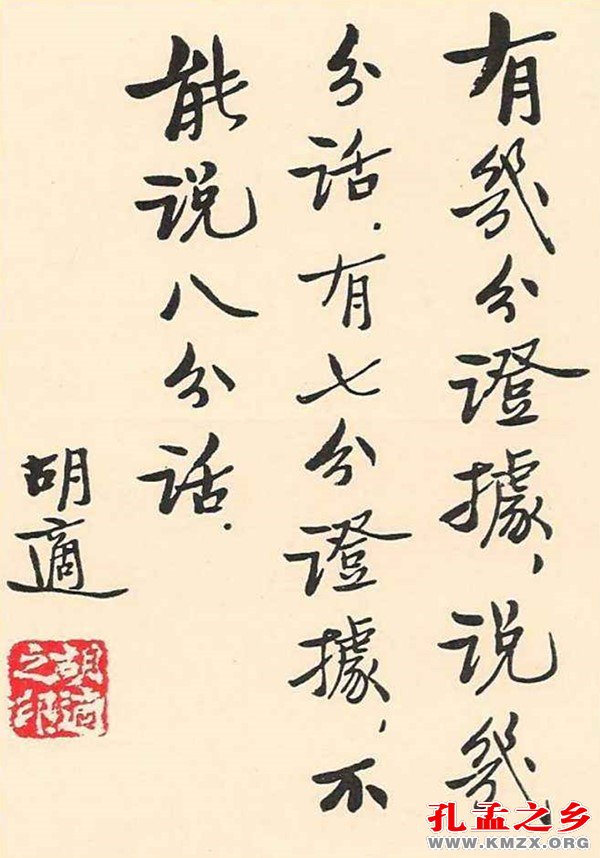 有幾分證據，说幾
分话．有七分證據，不
能说八分话．
胡適
胡適之印
孔孟之乡
WWW.KMZX.ORG